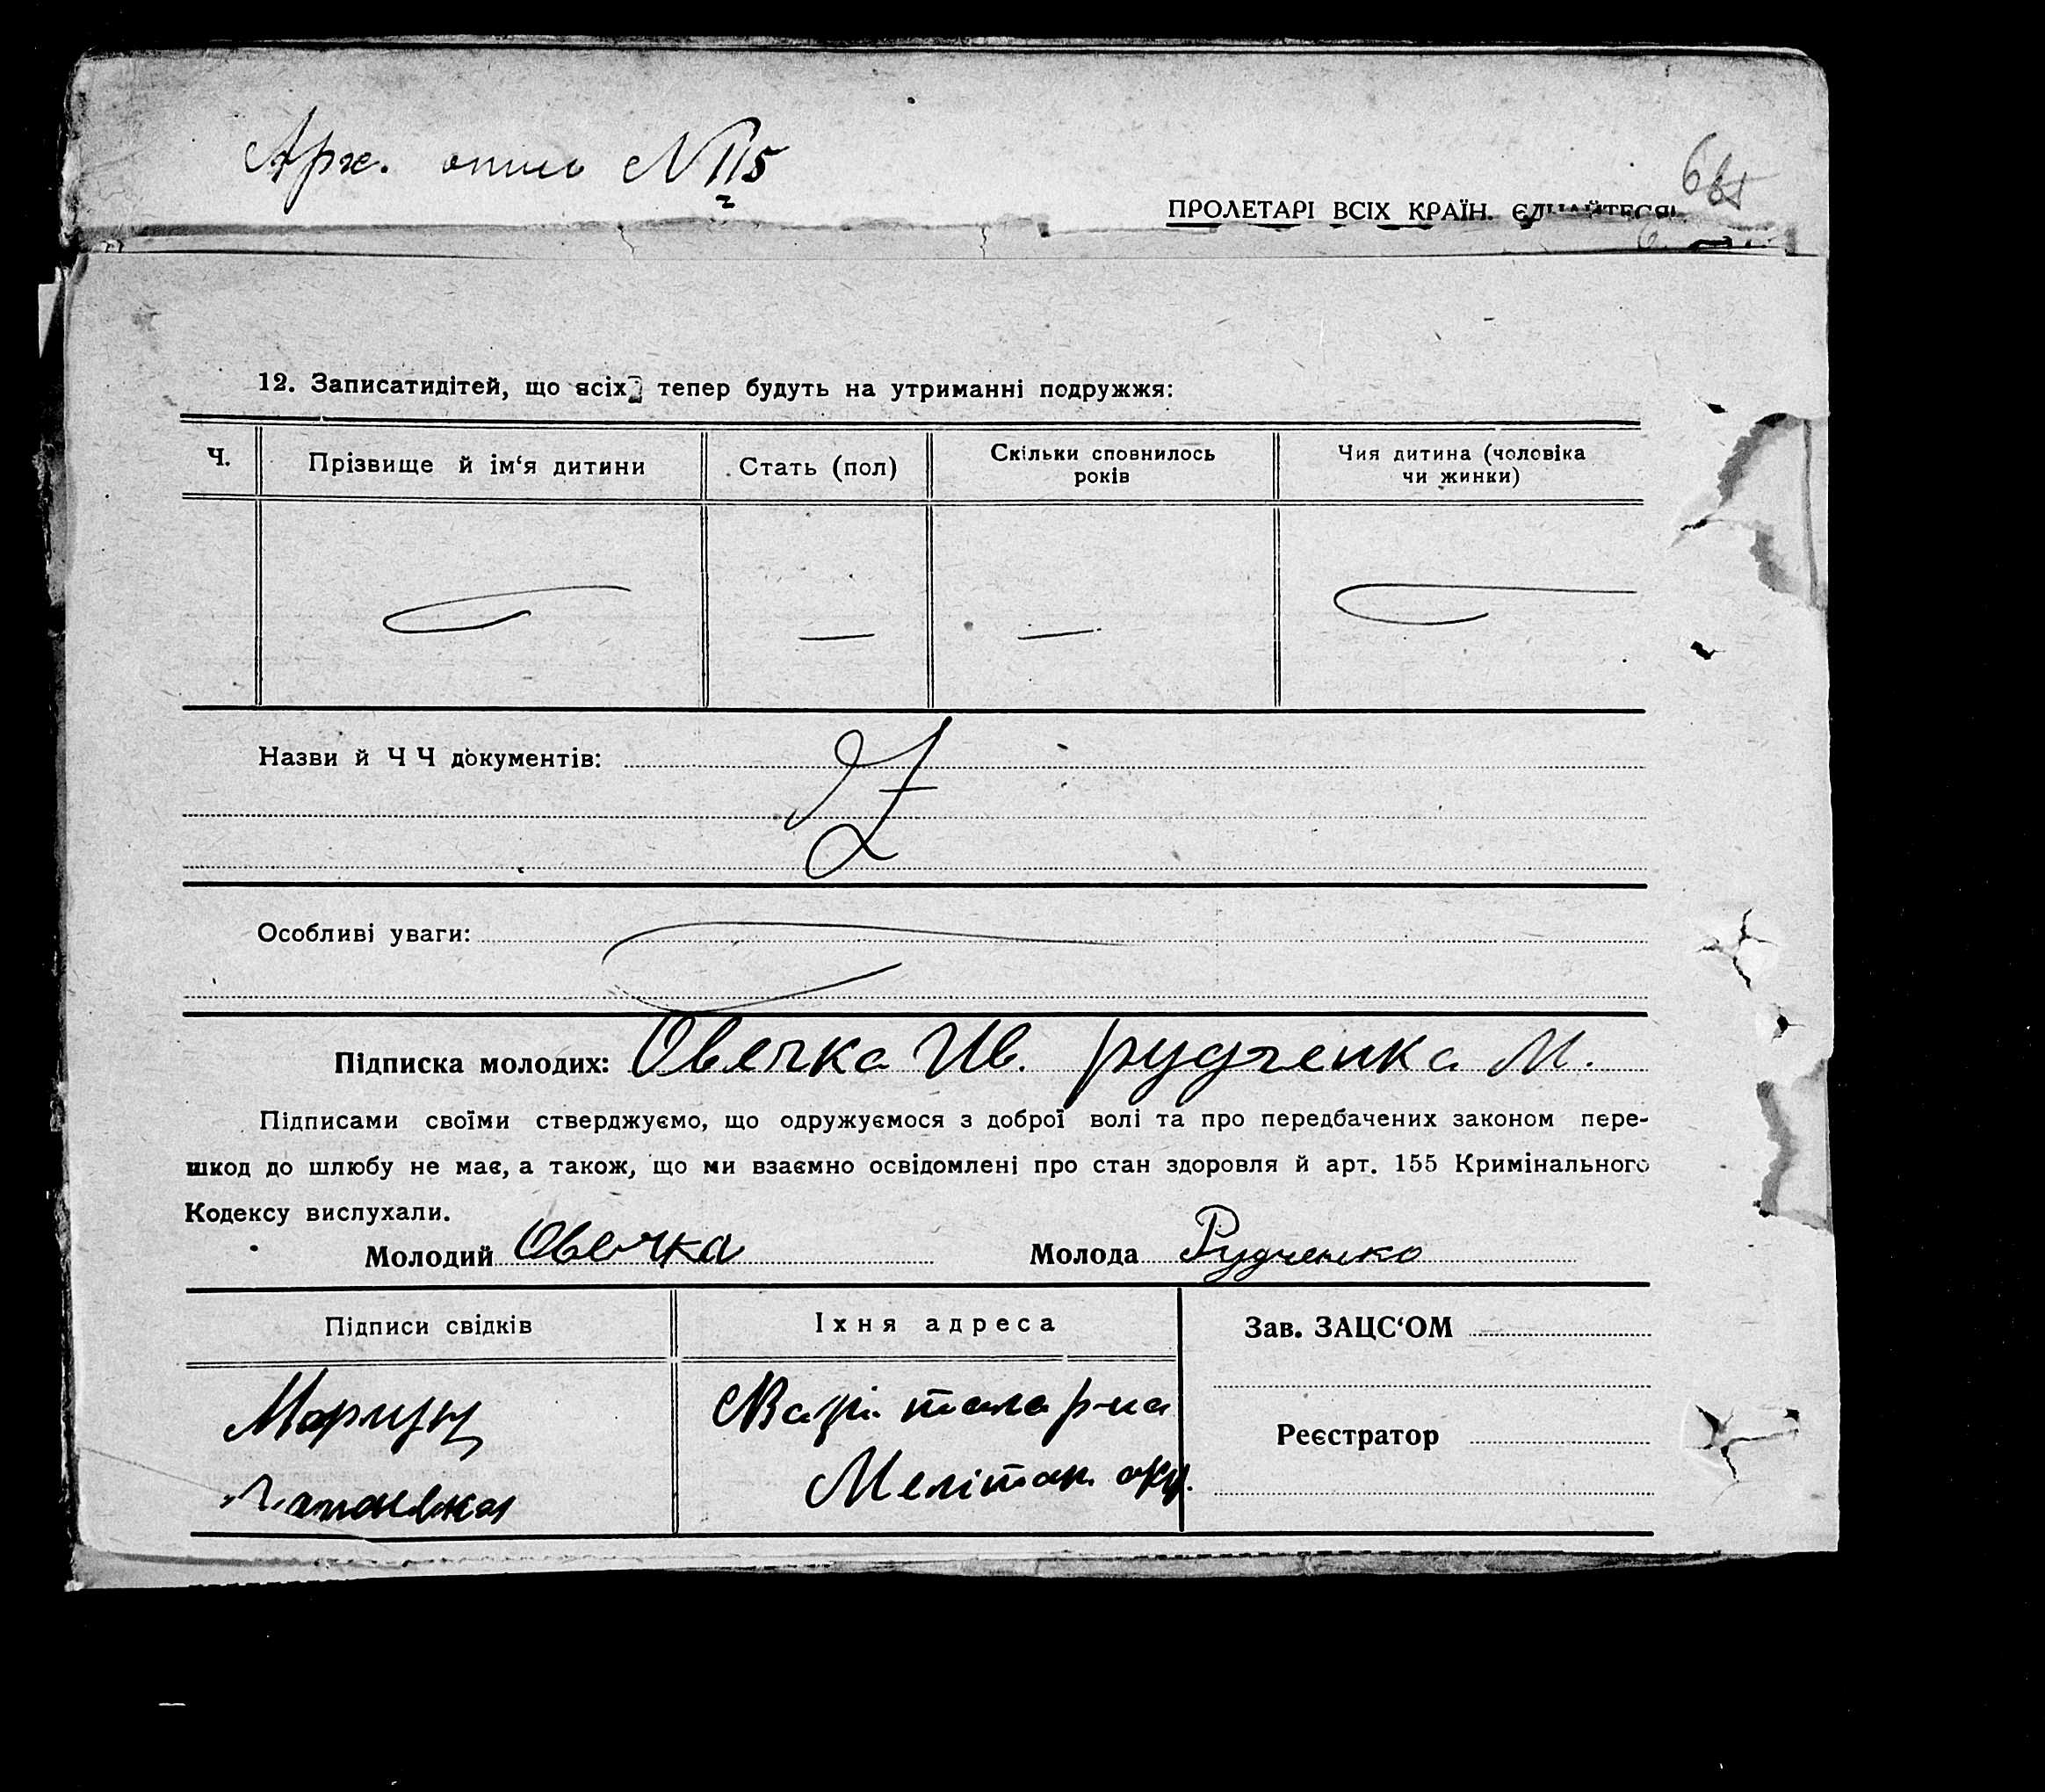 Арх. опис N 115
2
ПРОЛЕТАРІ ВСІХ КРАЇН. ЄДНАЙТЕСЯ!
12. Записатидітей, що всіх тепер будуть на утриманні подружжя:
Ч.
Прізвище й ім‘я дитини
Стать (пол)
Скільки сповнилось
років
Чия дитина (чоловіка
чи жинки)
Назви й Ч Ч документів:
Z
Особливі уваги:
Підписка молодих: Овечка Ив. Рудченка М.
Підписами своїми стверджуємо, що одружуємося з доброї волі та про передбачених законом пере-
шкод до шлюбу не має, а також, що ми взаємно освідомлені про стан здоровля й арт. 155 Кримінального
Кодексу вислухали.
Молодий Овечка Молода Рудченко
Підписи свідків
Їхня адреса
р-на
Мелітоп. окр.
Зав. ЗАЦС‘ОМ
Реєстратор